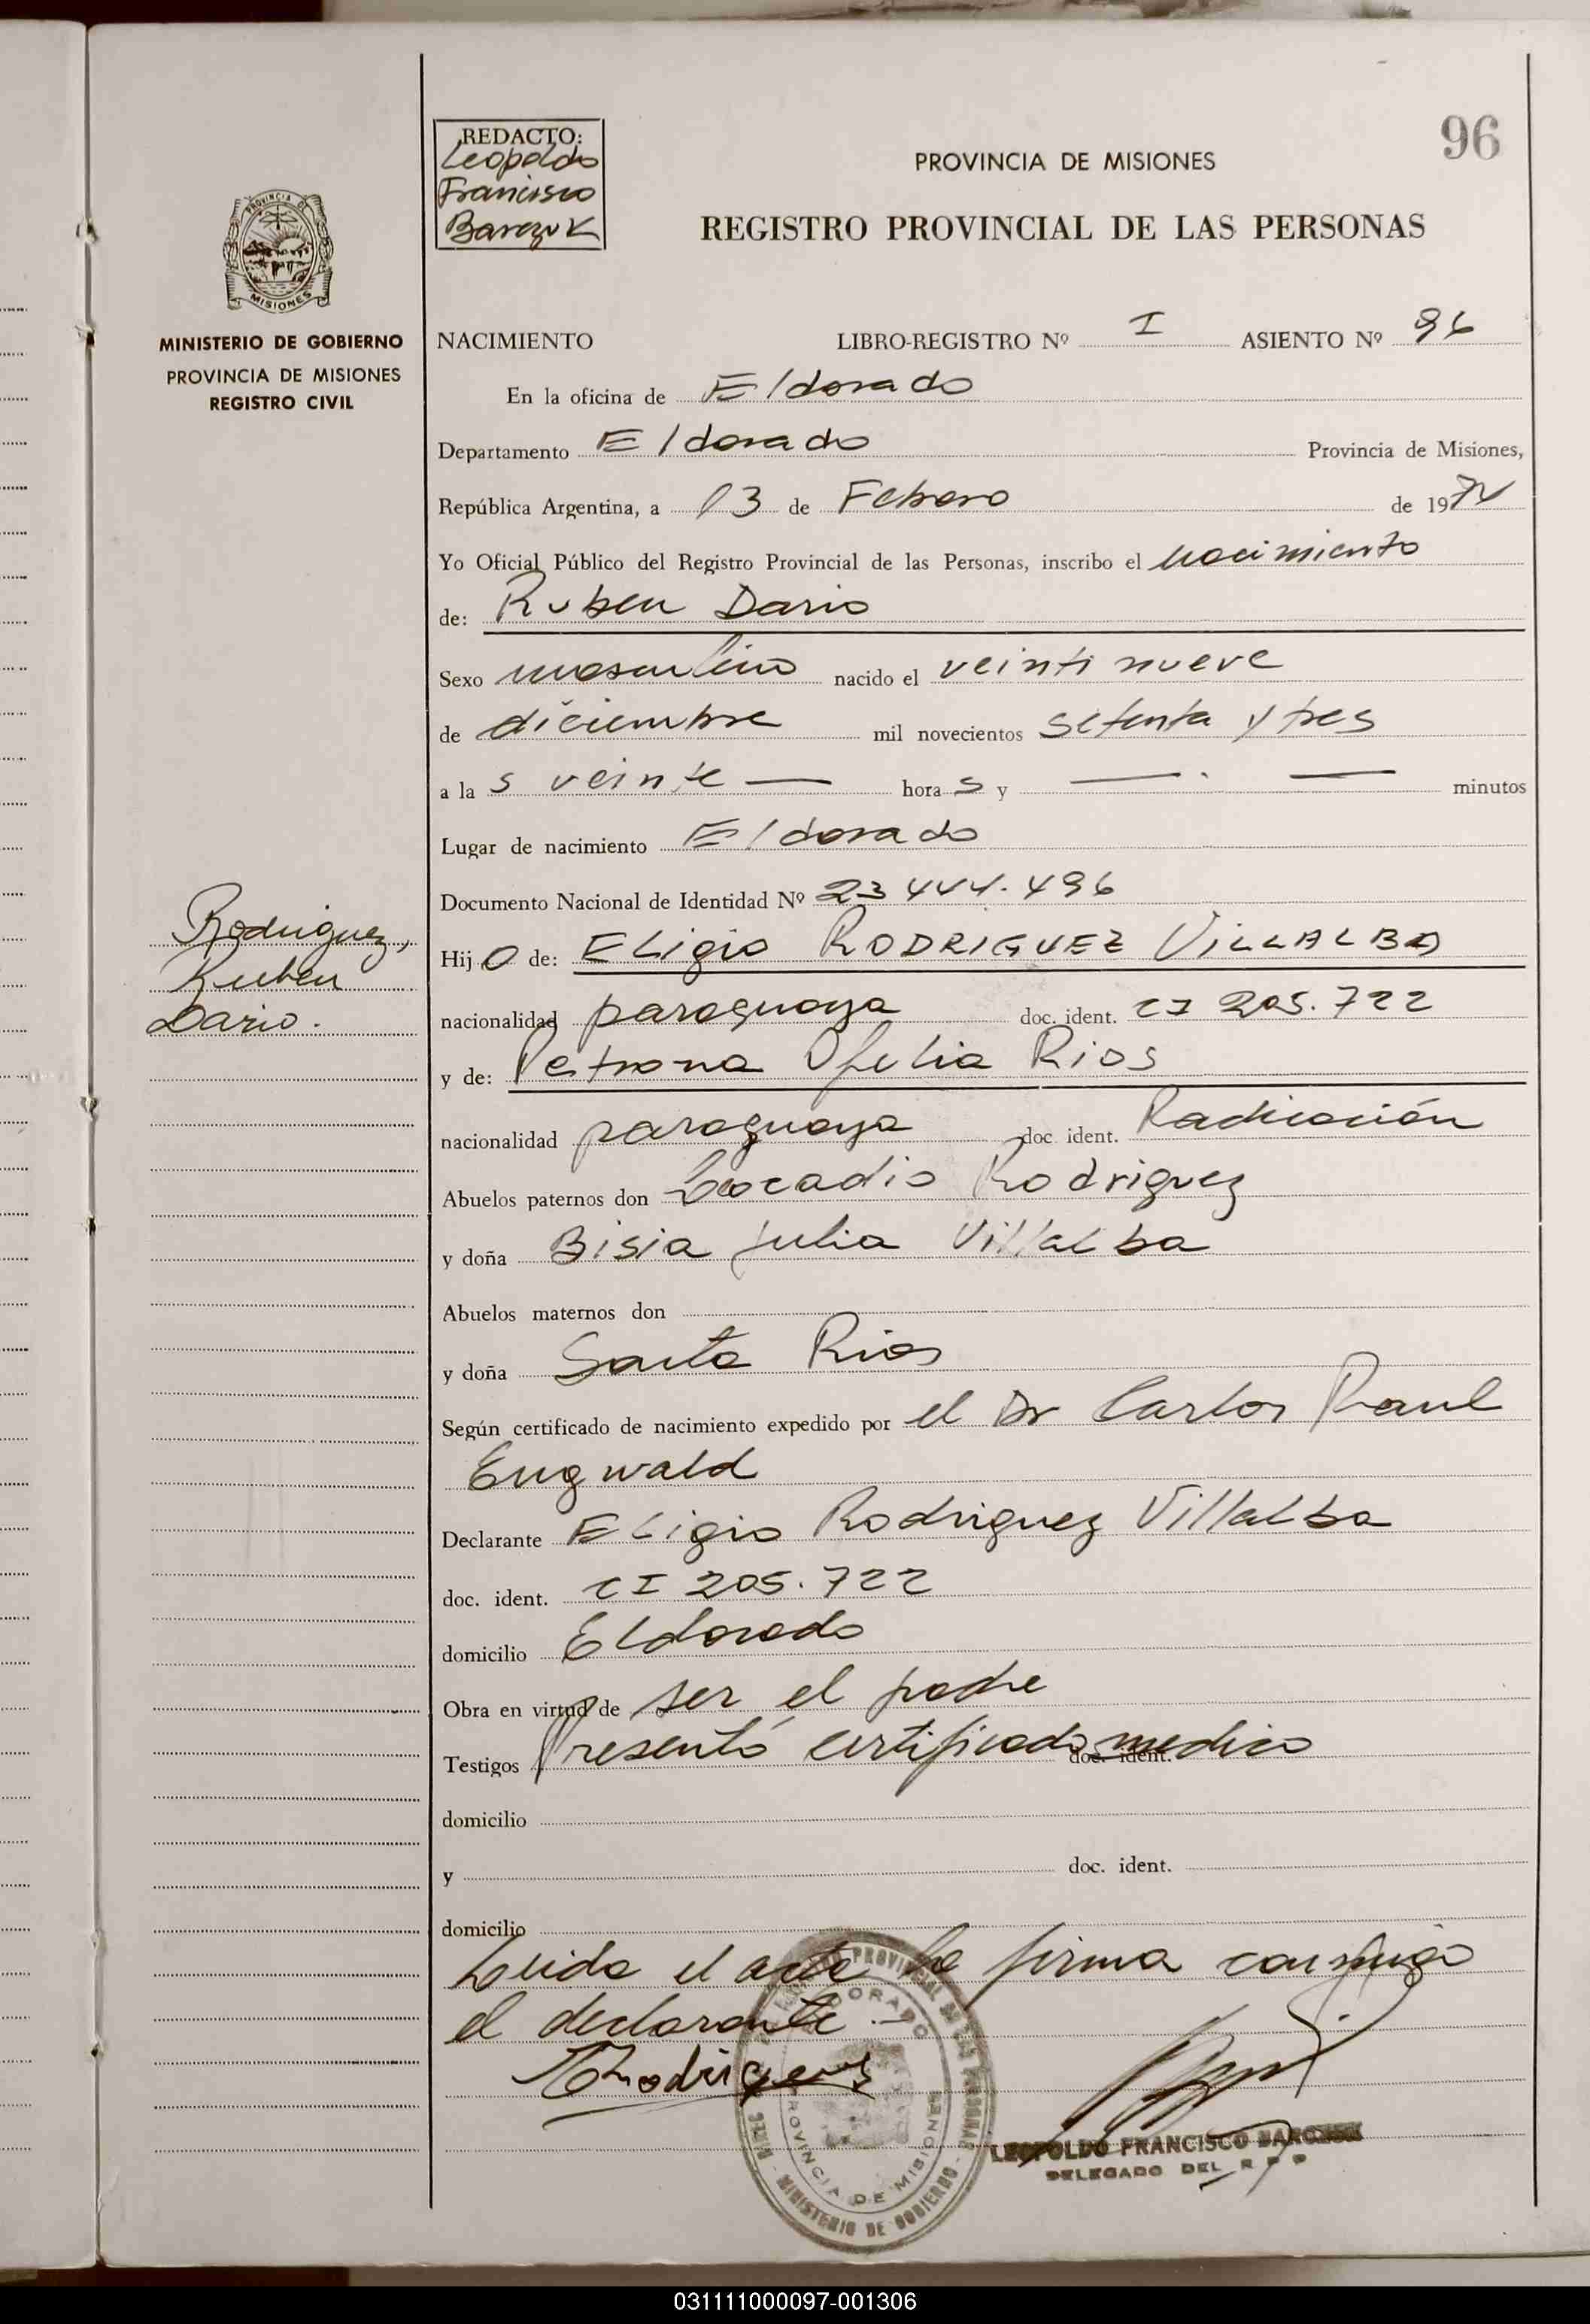 96
REDACTO:
Leopoldo
Francisco
Barczuk
PROVINCIA DE MISIONES
REGISTRO PROVINCIAL DE LAS PERSONAS
PROVINCIA DE
MISIONES
MINISTERIO DE GOBIERNO
PROVINCIA DE MISIONES
REGISTRO CIVIL
NACIMIENTO LIBRO-REGISTRO Nº I ASIENTO Nº 96
En la oficina de Eldorado
Departamento Eldorado Provincia de Misiones,
República Argentina, a 13 de Febrero de 1974
Yo Oficial Público del Registro Provincial de las Personas, inscribo el nacimiento
de: Ruben Dario
Sexo masculino nacido el veintinueve
de diciembre mil novecientos setenta y tres
a la s veinte — hora s y — . — minutos
Lugar de nacimiento Eldorado
Documento Nacional de Identidad Nº 23 444.496
Rodriguez,
Ruben
Dario.
Hij o de: ELigio RODRIGUEZ VILLALBA
nacionalidad paraguaya doc. ident. CI 205.722
y de: Petrona Ofelia Rios
nacionalidad paraguaya doc. ident. Radicación
Abuelos paternos don Locadio Rodriguez
y doña Bisia Julia Villalba
Abuelos maternos don
y doña Santa Rios
Según certificado de nacimiento expedido por el Dr Carlos Raul
Engwald
Declarante ELigio Rodriguez Villalba
doc. ident. CI 205.722
domicilio Eldorado
Obra en virtud de ser el padre
Testigos Presentó certificado medico doc. ident.
domicilio
y doc. ident.
domicilio
Leida el acta la firma conmigo
el declarante.-
ERodriguez
LEOPOLDO FRANCISCO BARCZUK
DELEGADO DEL R P P
REGISTRO PROVINCIAL DE LAS PERSONAS - MINISTERIO DE GOBIERNO -
ELDORADO
PROVINCIA DE MISIONES
031111000097-001306